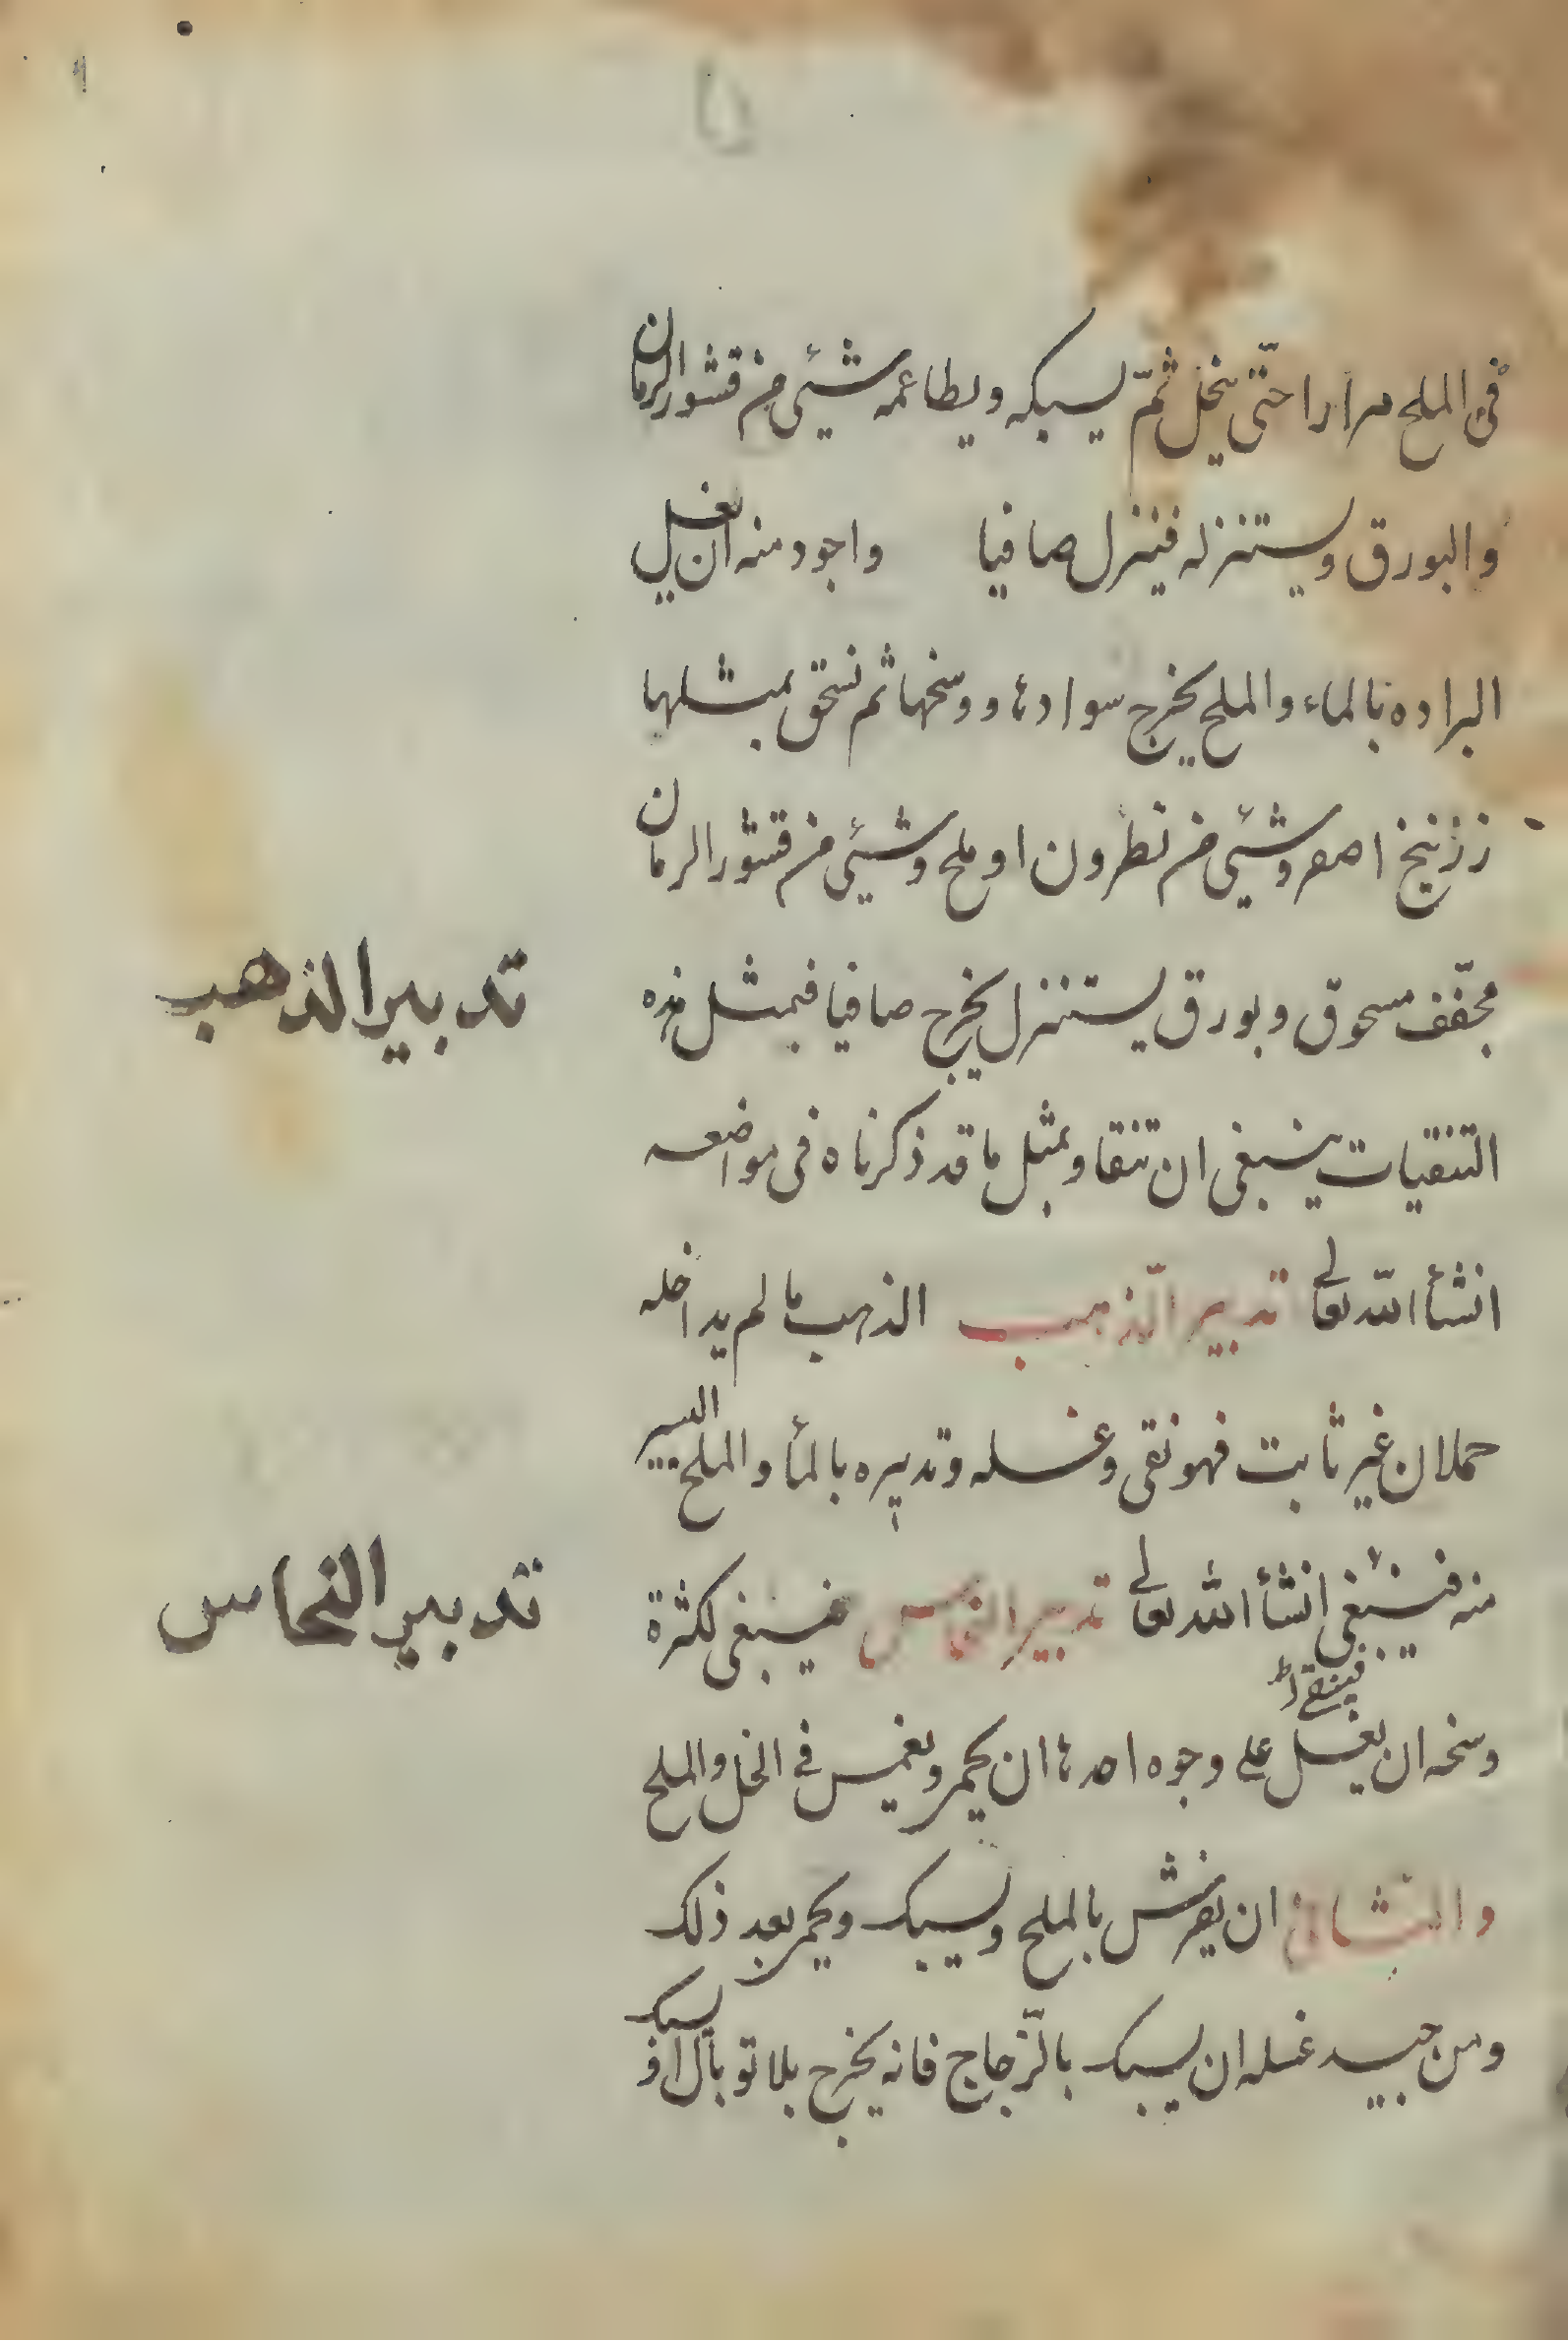 في الملح مرارا حتّى ينحل ثمّ يسبكه ويطاعمه شيئ من قشور الرمان
والبورق ويستنزله فينزل صافيا واجود منه ان يغسل
البراده بالماء والملح يخرج سوادها ووسخها ثم نسحق بمثلها
زرنيخ اصفر وشيئ من نطرون او ملح وشيئ من قشور الرمان
مجفّف مسحوق وبورق يستنزل يخرج صافيا فبمثل هذه
تدبير الذهب
التنقيات ينبغي ان تنقا وبمثل ما قد ذكرناه في مواضعه
انشأ اللّه تعالى تدبير الّذهب الذهب ما لم يداخله
حملان غير ثابت فهو نقى وغسله وتدبيره بالمأ والملح اليسير
منه فينبغي انشأ اللّه تعالى تدبير النحاس فينبغي لكثرة
تدبير النحاس
فينقى
وسخه ان يغسل على وجوه احدها ان يحمر ويغمس في الخل والملح
والثّاني ان يفرش بالملح ويسبك ويحمر بعد ذلك
ومن جيد غسله ان يسبك بالّزجاج فانه يخرج بلا توبال او يسبك